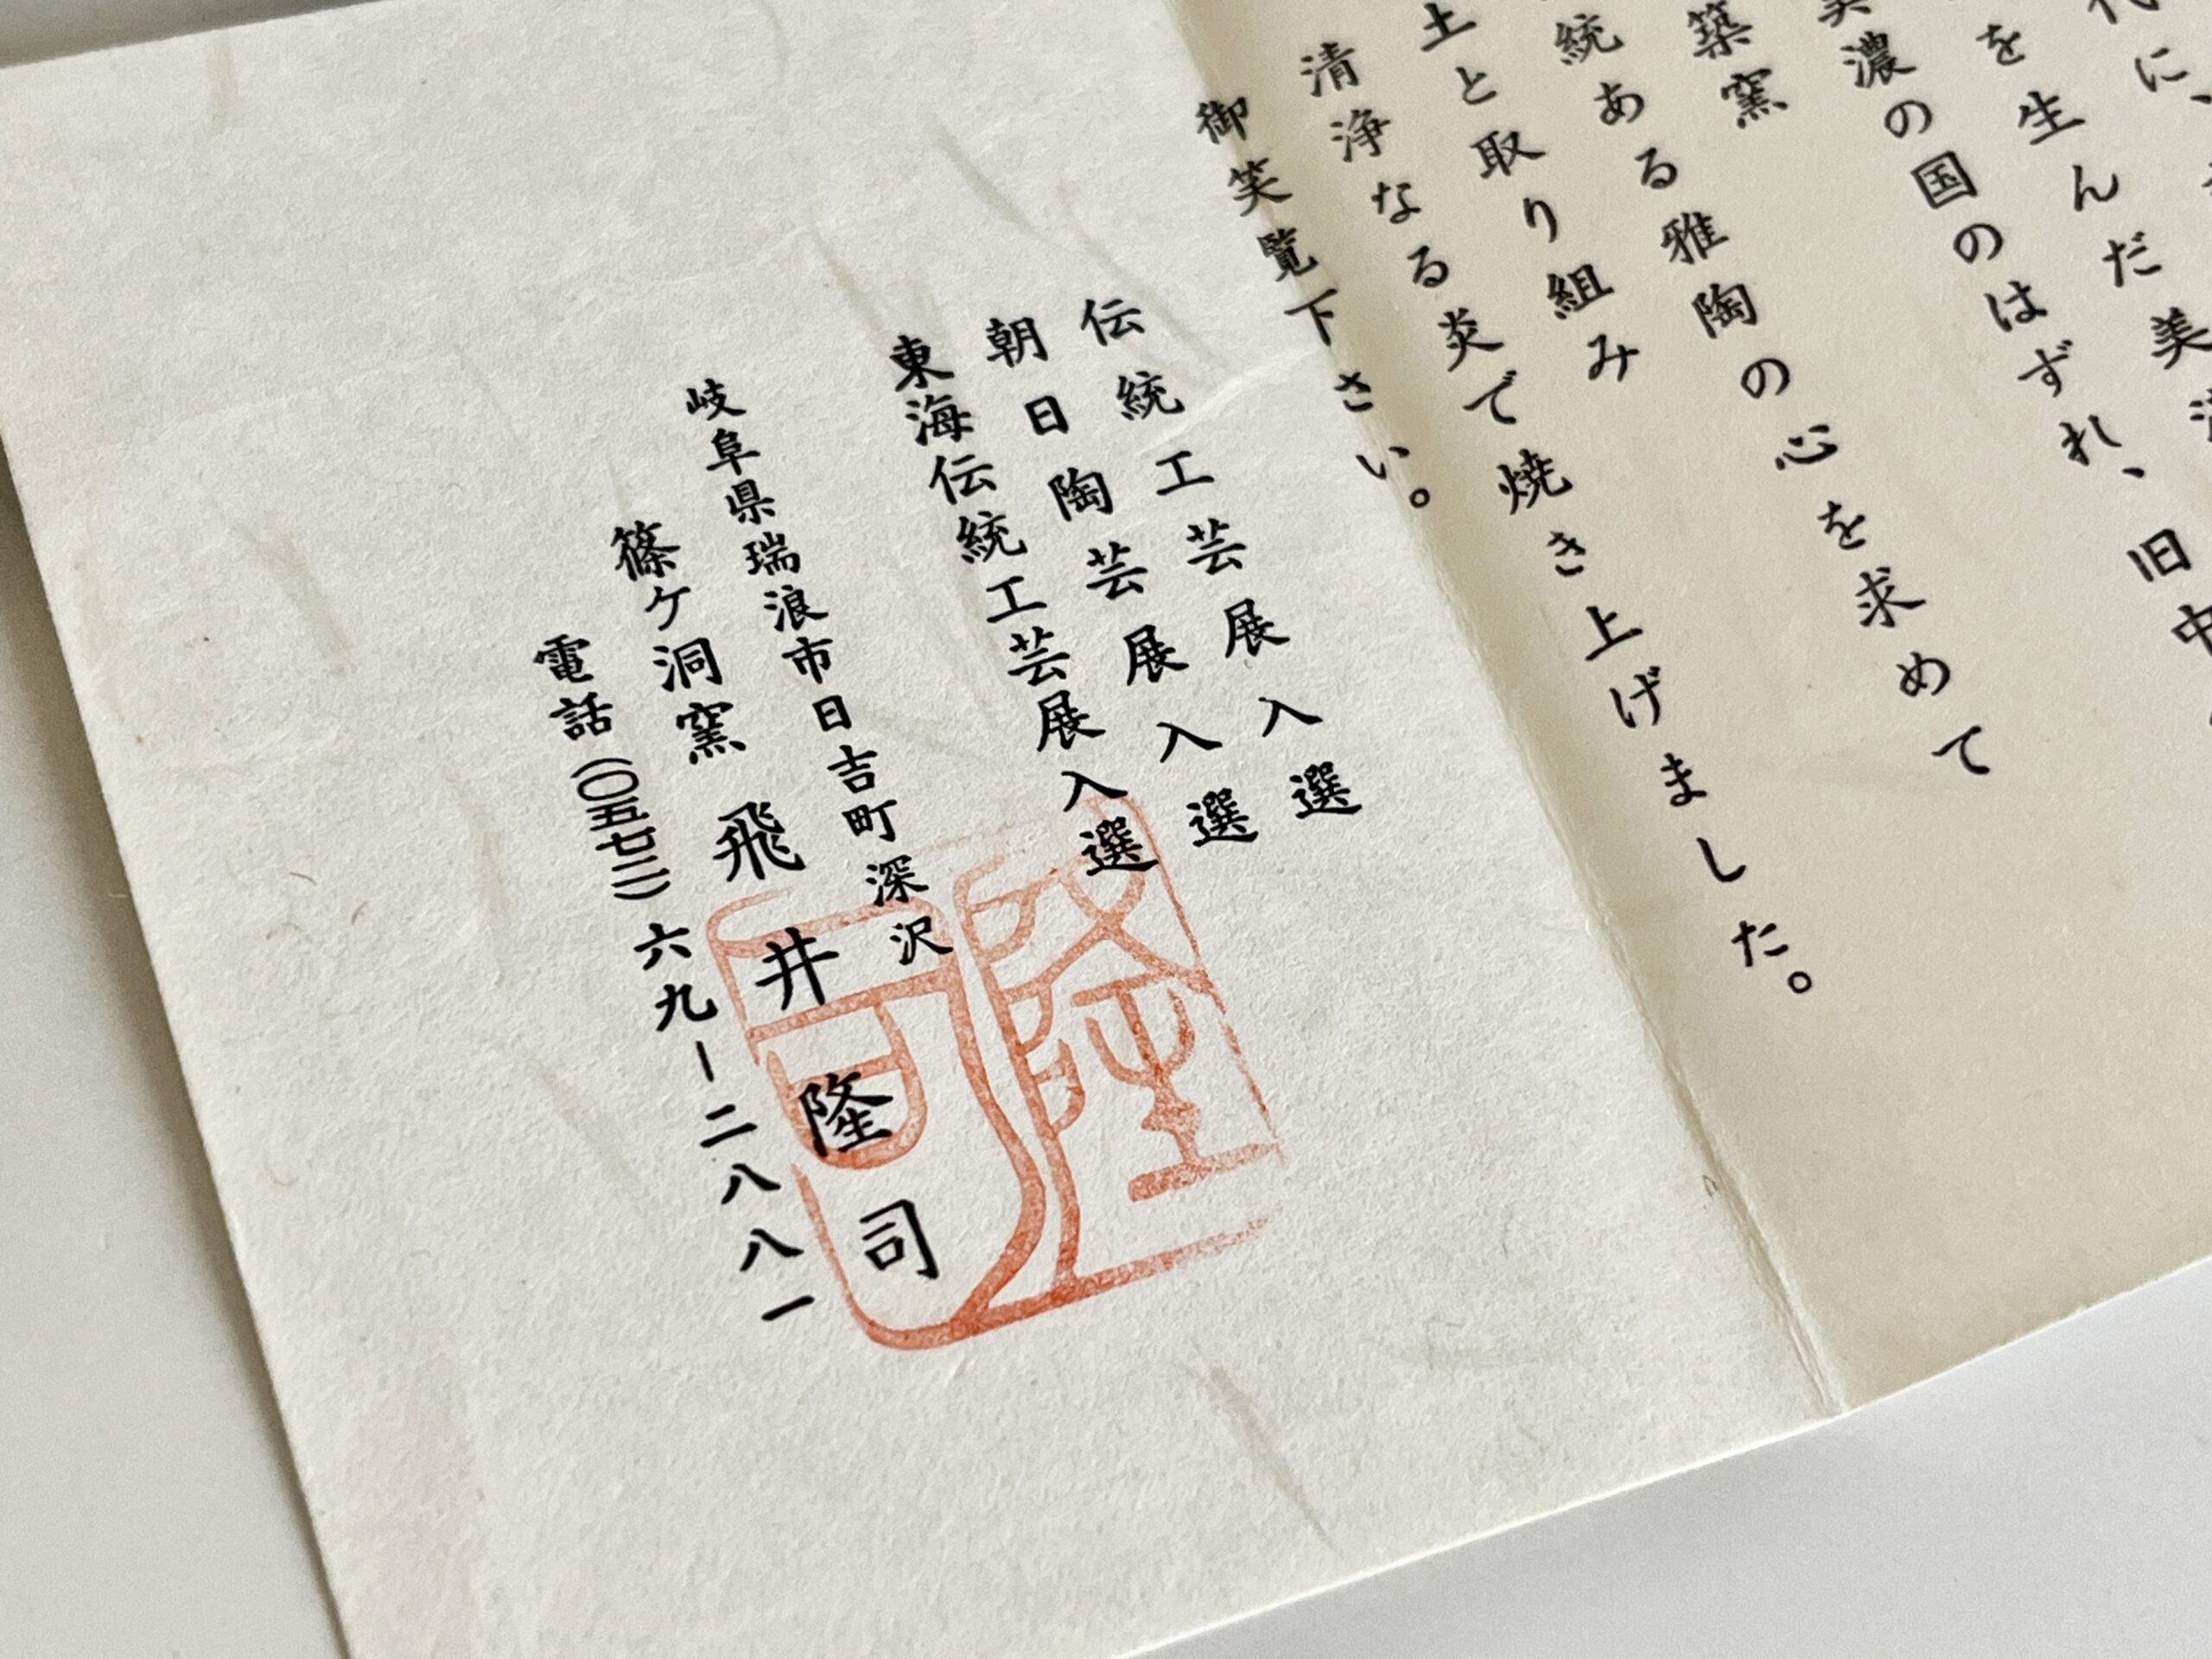 代に、
を生んだ美濃
美濃の国のはずれ、旧中
築窯
統ある雅陶の心を求めて
土と取り組み
清浄なる炎で焼き上げました。
御笑覧下さい。
伝統工芸展入選
朝日陶芸展入選
東海伝統工芸展入選
岐阜県瑞浪市日吉町深沢
篠ケ洞窯 飛井隆司
電話(〇五七二)六九-二八八一
隆司